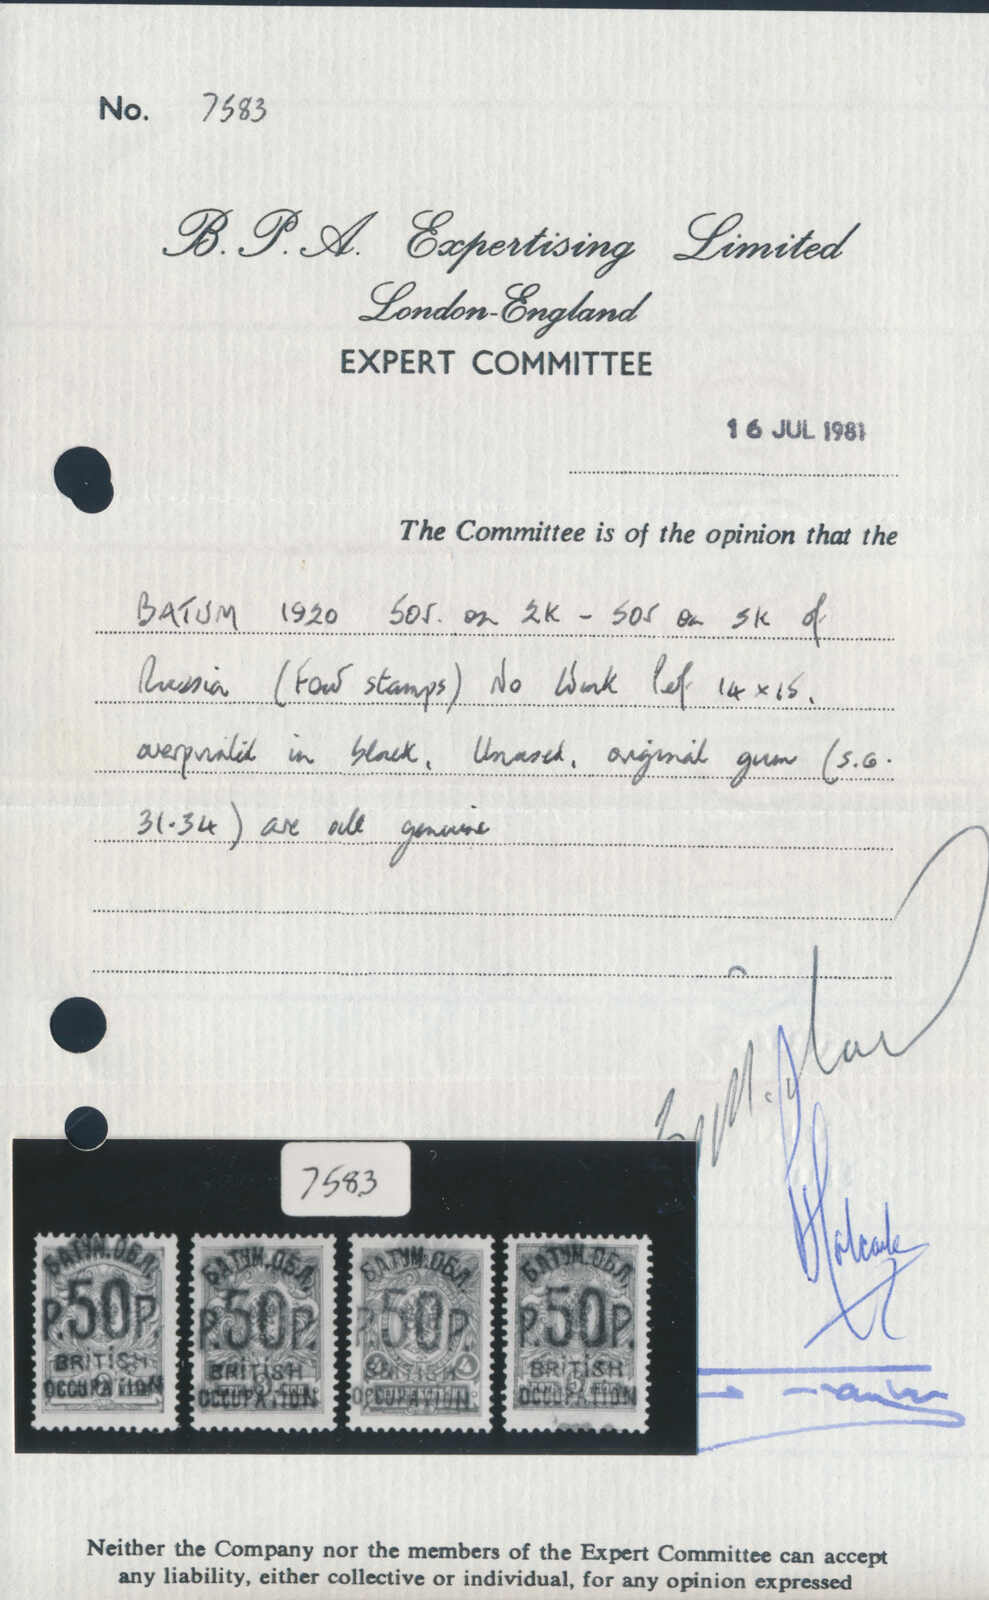 No. 7583
B. P. A. Expertising Limited
London-England
EXPERT COMMITTEE
16 JUL 1981
The Committee is of the opinion that the
BATUM 1920 50r. on 2K - 50r on 5K of
Russia (Four stamps) No Wmk Perf 14 x 15,
overprinted in black, Unused, original gum (S.G.
31-34) are all genuine
7583
БАТУМ.ОБЛ. БАТУМ.ОБЛ. БАТУМ.ОБЛ. БАТУМ.ОБЛ.
Р.50Р. Р.50Р. Р.50Р. Р.50Р.
BRITISH BRITISH BRITISH BRITISH
OCCUPATION OCCUPATION OCCUPATION OCCUPATION
Neither the Company nor the members of the Expert Committee can accept
any liability, either collective or individual, for any opinion expressed